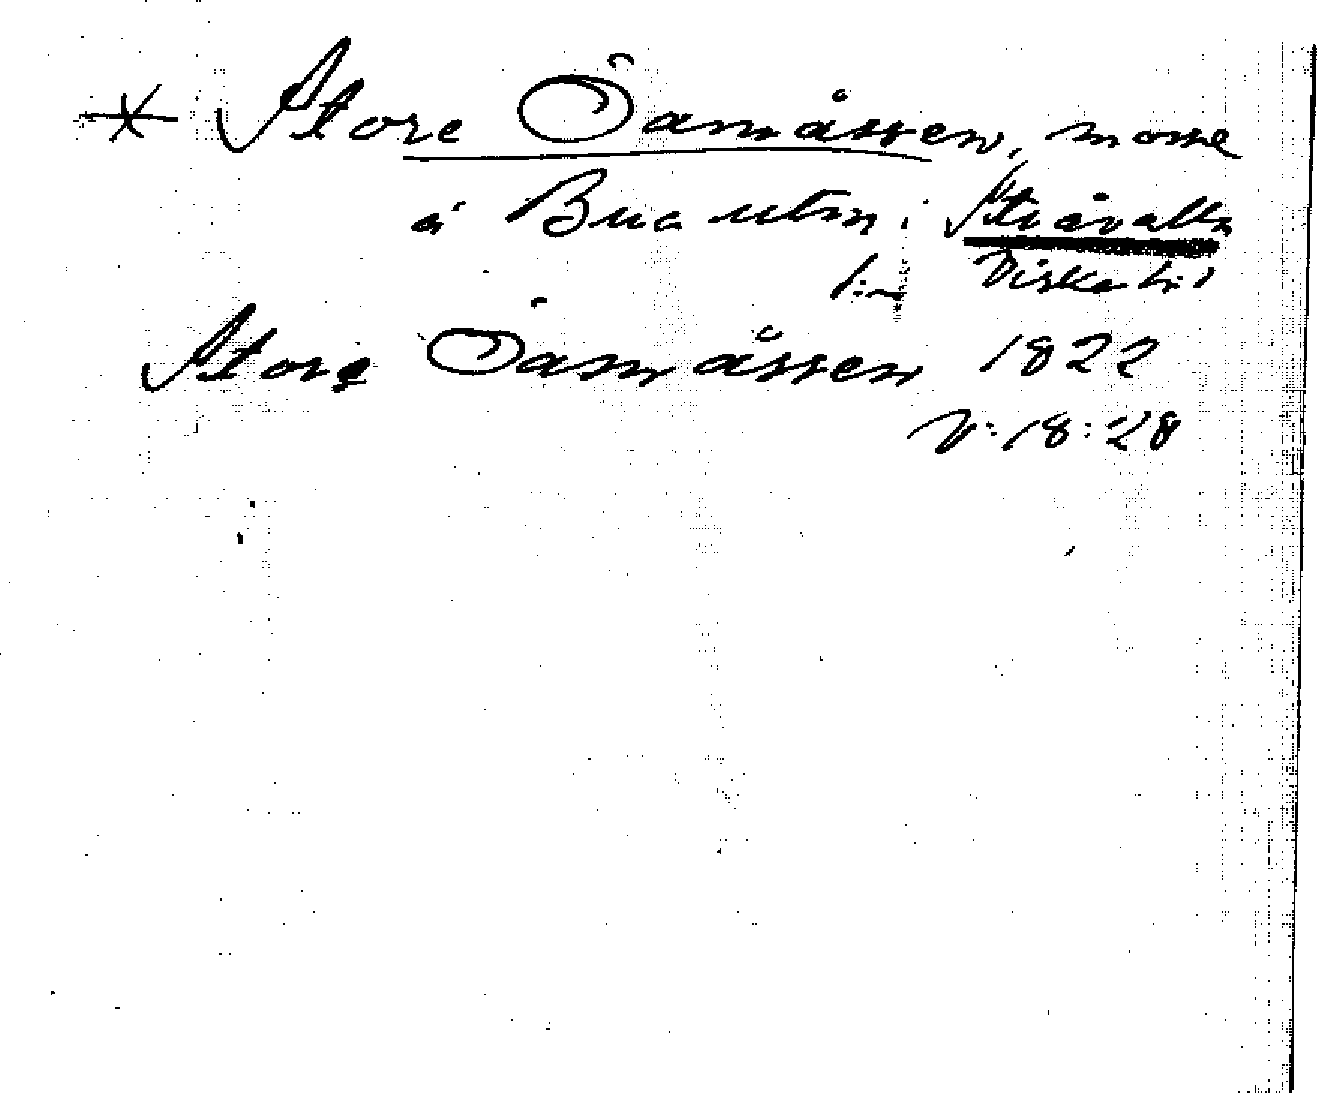 * Store Öamåssen, mosse
å Bua utm. i Stråvalla
s:n Viske hd
Store Öamåssen 1822
V:18:28